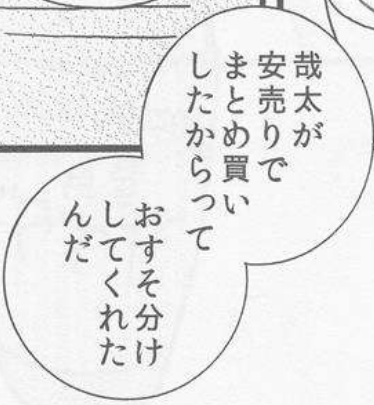 哉太が
安売りで
まとめ買い
したからって
おすそ分け
してくれた
んだ